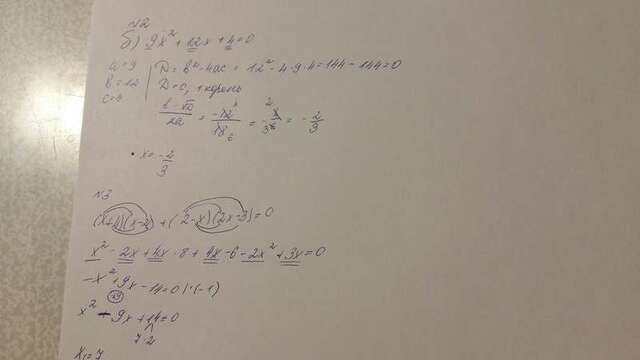 №2
б) 9x² + 12x + 4 = 0
a = 9
b = 12
c = 4
D = b² - 4ac = 12² - 4·9·4 = 144 - 144 = 0
D = 0, 1 корень
= -12/18 = = -2/3
x = -2/3
№3
(x+4)(x-2) + (2-x)(2x-3) = 0
x² - 2x + 4x - 8 + 4x - 6 - 2x² + 3x = 0
-x² + 9x - 14 = 0 |·(-1)
x² - 9x + 14 = 0
7·2
x₁ = 7